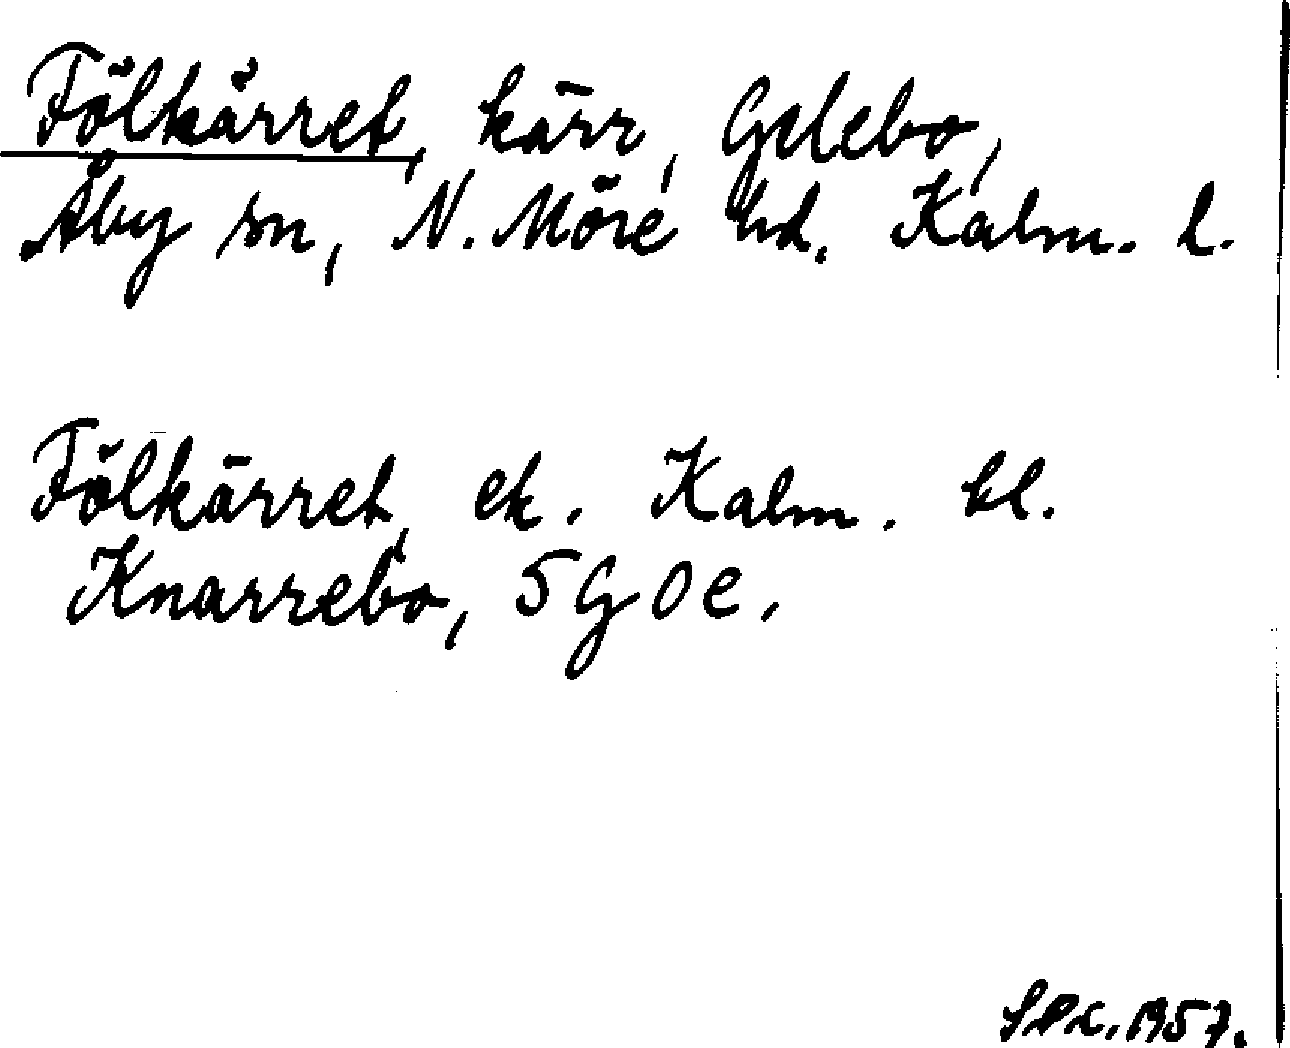 Fölkärret, kärr, Gelebo,
Åby sn, N. Möre hd. Kalm. l.
Fölkärret, ek. Kalm. bl.
Knarrebo, 5 G 0 e.
1957.